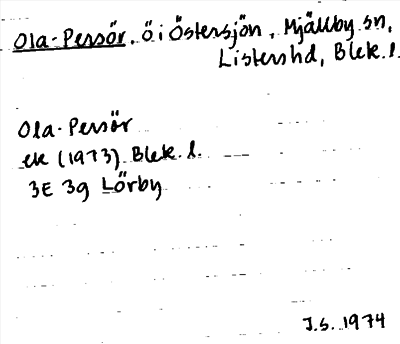 Ola-Persör, ö i Östersjön, Mjällby sn,
Listers hd, Blek. l.
Ola-Persör
ek (1973) Blek. l.
3E 3g Lörby
J.S. 1974